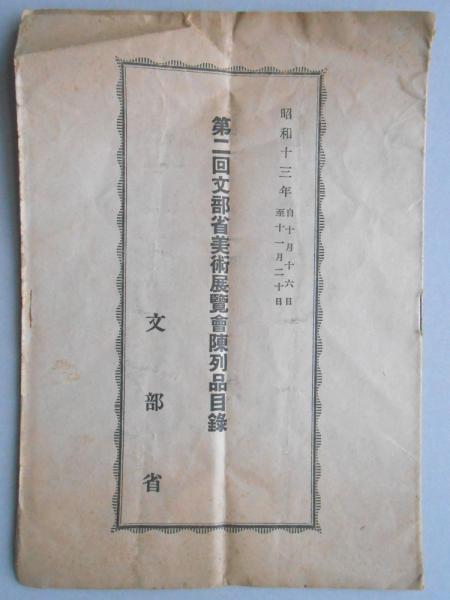 昭和十三年 自十月十六日 至十一月二十日
第二回文部省美術展覽會陳列品目錄
文部省